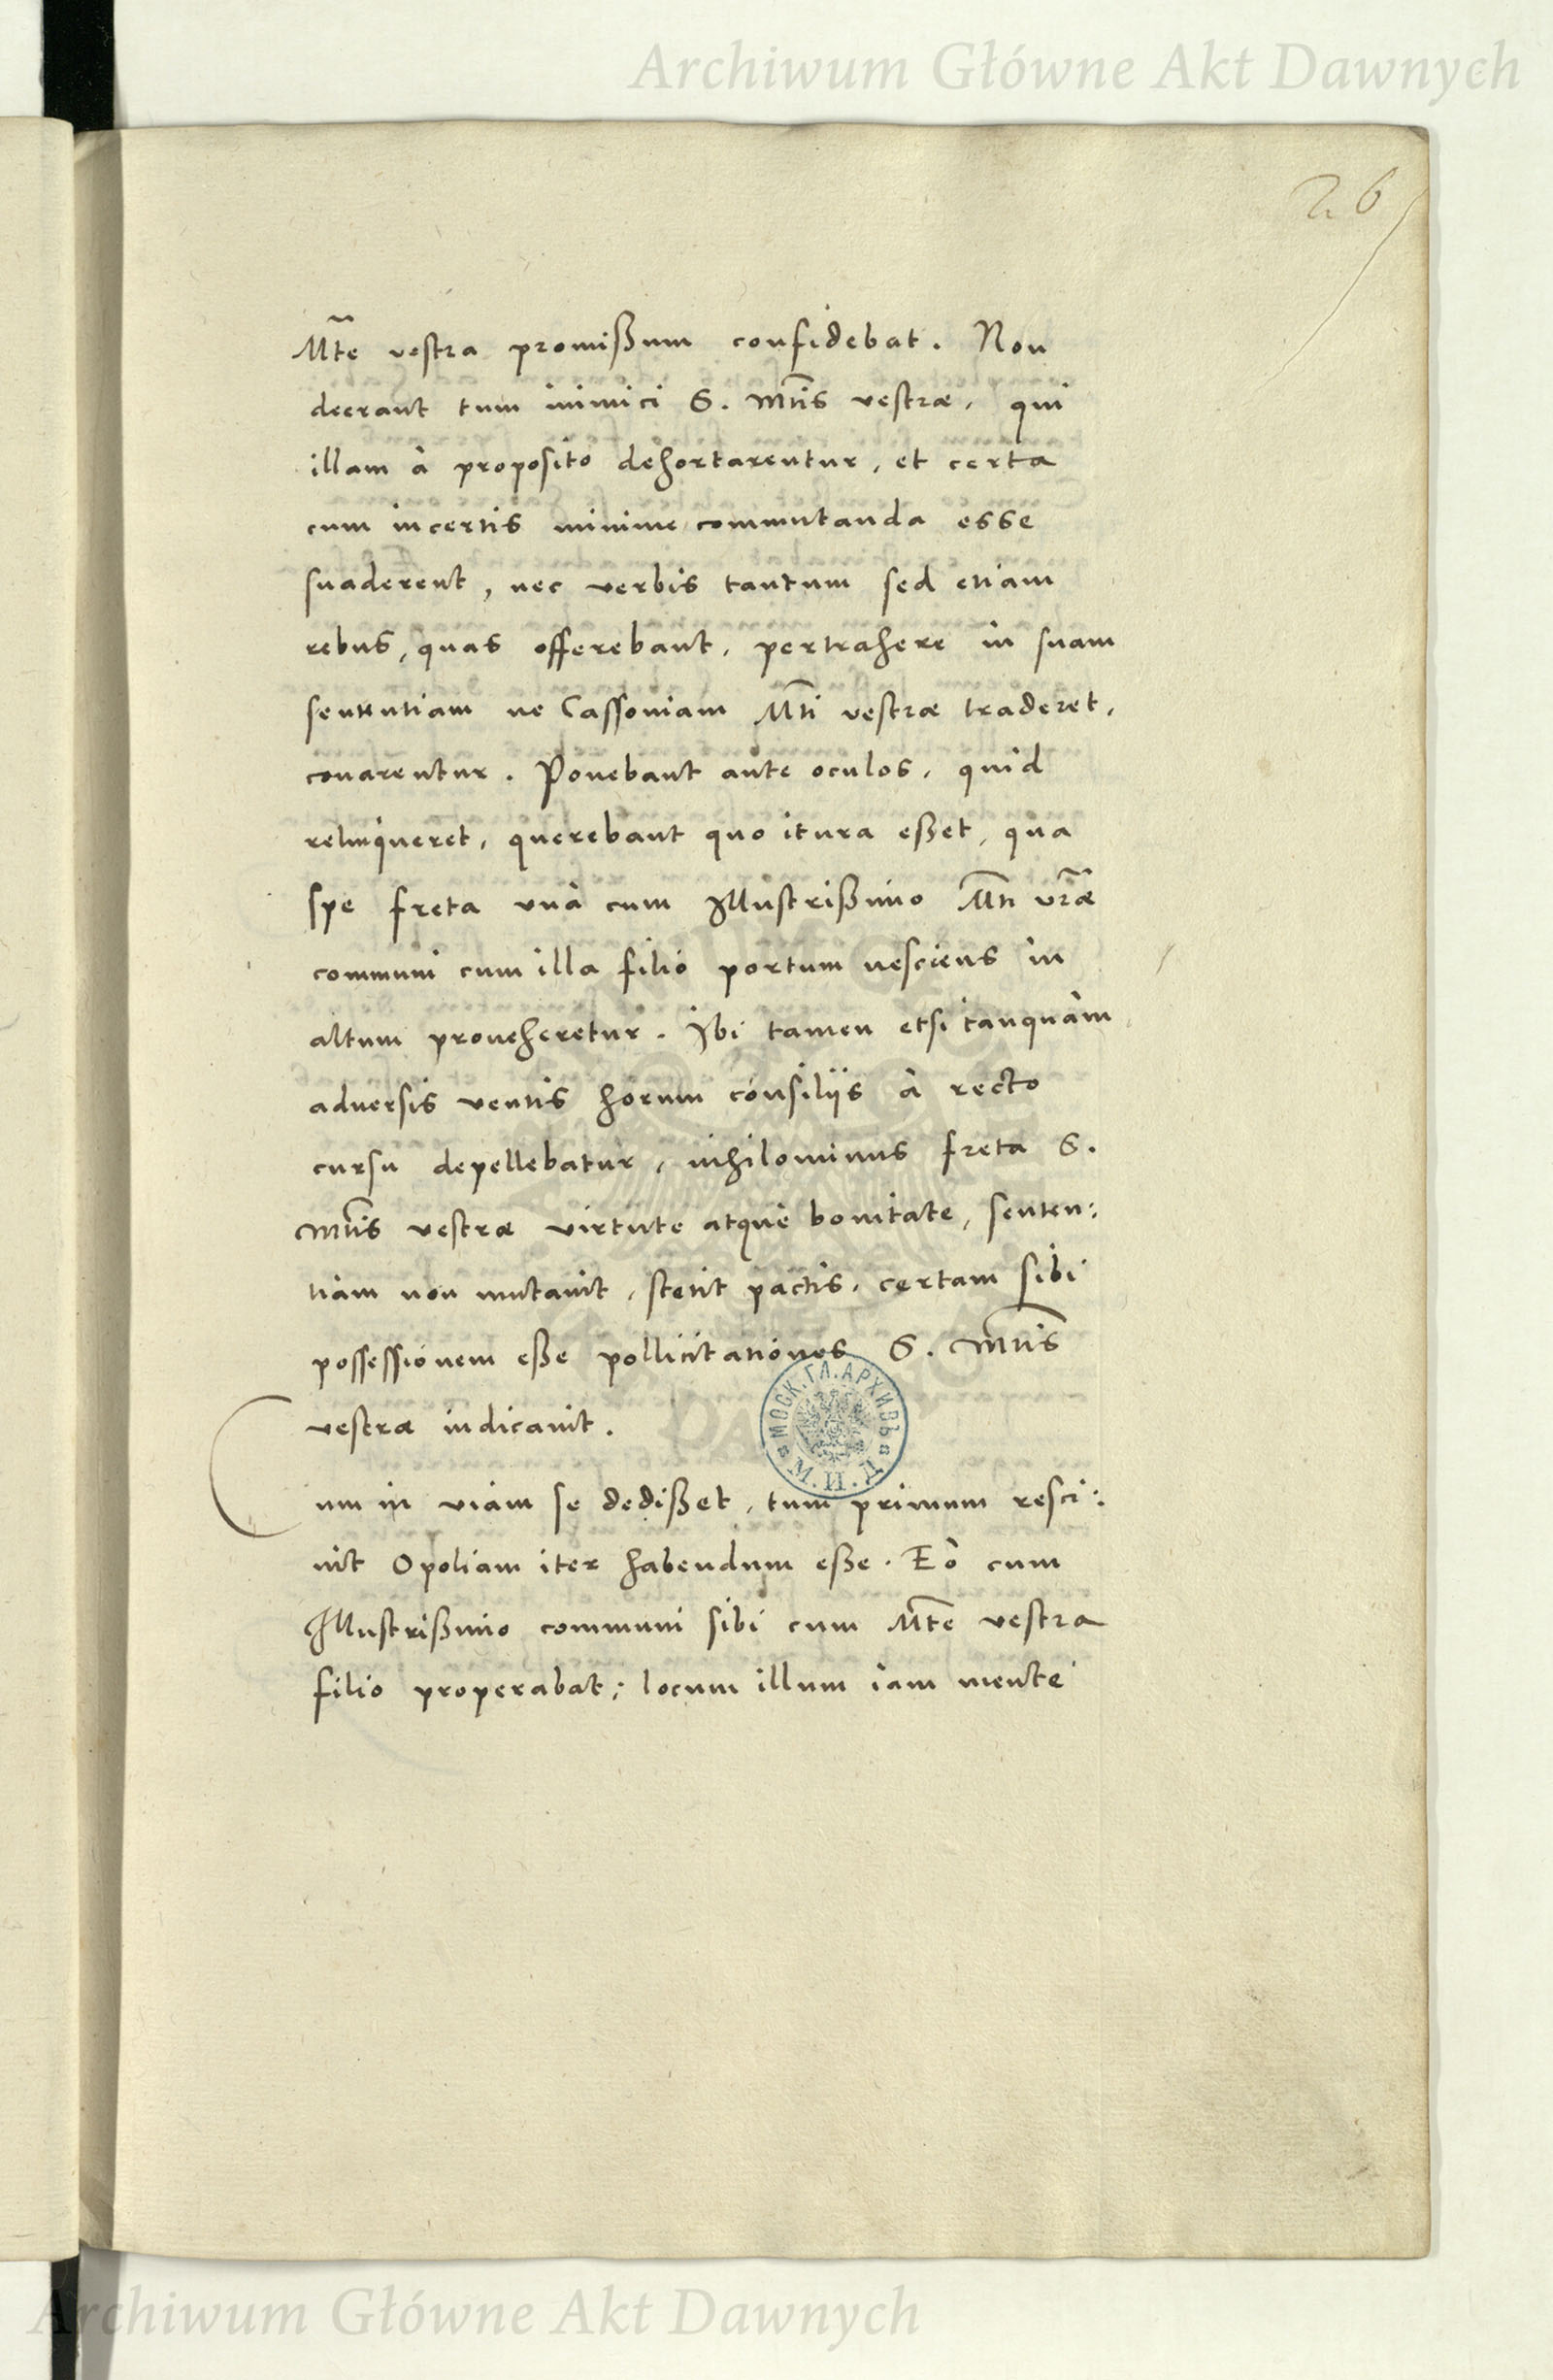 Archiwum Główne Akt Dawnych
26
Mt̃e vestra promißum confidebat. Non
deerant tum inimici S. Mt̃is vestræ, qui
illam à proposito dehortarentur, et certa
cum incertis minime commutanda esse
suaderent, nec verbis tantum sed etiam
rebus, quas offerebant, pertrahere in suam
sententiam ne Cassoviam Mt̃i vestræ traderet,
conarentur. Ponebant ante oculos, quid
relinqueret, querebant quo itura eßet, qua
spe freta unà cum Illustrißimo Mt̃i vr̃æ
communi cum illa filio portum nesciens in
altum proveheretur. Ibi tamen etsi tanquàm
adversis ventis horum consiliis à recto
cursu depellebatur, nihilominus freta S.
Mt̃is vestræ virtute atque bonitate, senten:
tiam non mutavit, stetit pactis, certam sibi
possessionem eße pollicitationes S. Mt̃is
vestræ iudicavit.
Cum in viam se dedißet, tum primum resci:
vit Opoliam iter habendum eße. Eò cum
Illustrißimo communi sibi cum Mt̃e vestra
filio properabat; locum illum iam mente
МОСК. ГЛ. АРХИВЪ
М. И. Д.
Archiwum Główne Akt Dawnych